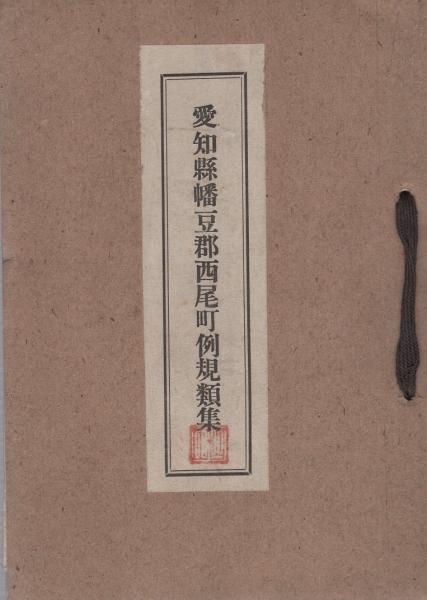 愛知縣幡豆郡西尾町例規類集